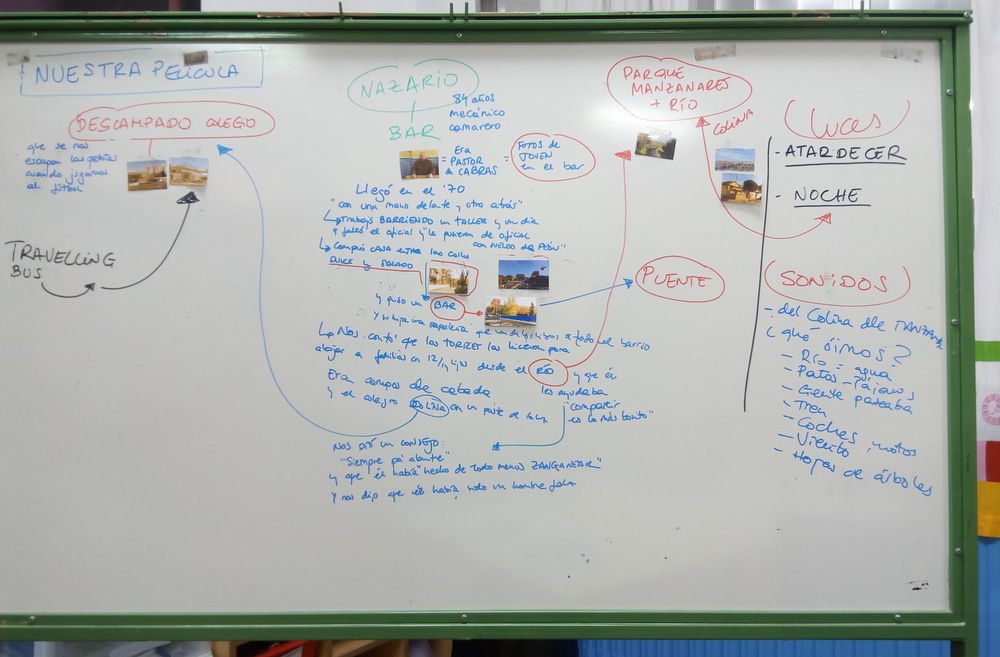 NUESTRA PELÍCULA
DESCAMPADO COLEGIO
que se nos
escapan las pelotas
cuando jugamos
al fútbol
TRAVELLING
BUS
NAZARIO
84 años
mecánico
camarero
BAR
= Era
PASTOR
de CABRAS
= FOTOS de
JOVEN
en el bar
Llegó en el '70
"con una mano delante y otra atrás"
Trabajó BARRIENDO un TALLER y un día
faltó el oficial y le pusieron de oficial
con sueldo de PEÓN"
Compró casa entre las calles
DULCE y SALADO
y puso un BAR
y su hija una papelería que vendía libros a todo el barrio
Nos contó que las TORRES las hicieron para
alojar a familias en desde el RÍO y que él
les ayudaba
"compartir
es lo más bonito"
Eran campos de cebada
y el colegio COLINA con un poste de luz
NOS DIÓ UN CONSEJO:
"Siempre pa' alante"
y que él había "hecho de todo menos ZANGANEAR"
Y nos dijo que él había sido un hombre feliz
PUENTE
PARQUE
MANZANARES
+ RÍO
COLINA
LUCES
- ATARDECER
- NOCHE
SONIDOS
- del Colina del
¿qué óimos?
- Río = agua
- Patos - Pájaros
- Gente paseaba
- Tren
- Coches, motos
- Viento
- Hojas de árboles